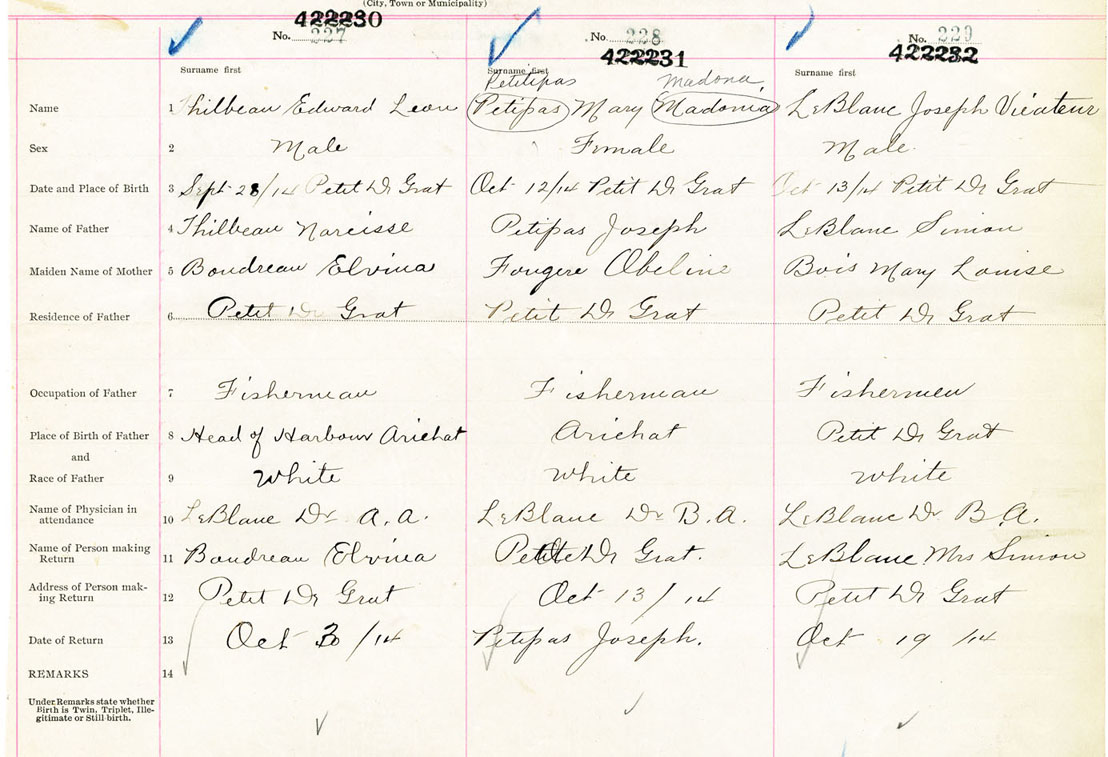 (City, Town or Municipality)
422230 422231 422232
No. 227 No. 228 No. 229
Surname first Surname first Surname first
Petitipas Madona
Name 1 Thilbeau Edward Leon Petipas Mary Madonia LeBlanc Joseph Vicateur
Sex 2 Male Female Male
Date and Place of Birth 3 Sept 28/14 Petit Dr Grat Oct 12/14 Petit Dr Grat Oct 13/14 Petit Dr Grat
Name of Father 4 Thilbeau Narcisse Petipas Joseph LeBlanc Simon
Maiden Name of Mother 5 Boudreau Elvina Fougere Obeline Bois Mary Louise
Residence of Father 6 Petit Dr Grat Petit Dr Grat Petit Dr Grat
Occupation of Father 7 Fisherman Fisherman Fishermen
Place of Birth of Father 8 Head of Harbour Arichat Arichat Petit Dr Grat
and
Race of Father 9 White White White
Name of Physician in
attendance 10 LeBlanc Dr A.A. LeBlanc Dr B.A. LeBlanc Dr B.A.
Name of Person making
Return 11 Boudreau Elvina Petit Dr Grat. LeBlanc Mrs Simon
Address of Person mak-
ing Return 12 Petit Dr Grat Oct 13/14 Petit Dr Grat
Date of Return 13 Oct 30/14 Petipas Joseph. Oct 19/14
REMARKS 14
Under Remarks state whether
Birth is Twin, Triplet, Ille-
gitimate or Still-birth.